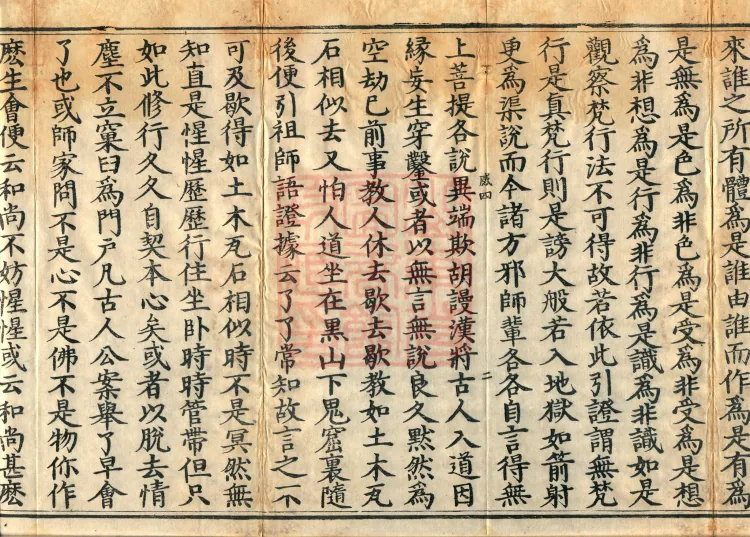 來誰之所有體為是誰由誰而作為是有為
是無為是色為非色為是受為非受為是想
為非想為是行為非行為是識為非識如是
觀察梵行法不可得故若依此引證謂無梵
行是真梵行則是謗大般若入地獄如箭射
更為渠說而今諸方邪師輩各各自言得無
上菩提各說異端欺胡謾漢將古人入道因
縁妄生穿鑿或者以無言無說良久默然為
空劫已前事教人休去歇去歇教如土木瓦
石相似去又怕人道坐在黒山下鬼窟裏隨
後便引祖師語證據云了了常知故言之不
可及歇得如土木瓦石相似時不是冥然無
知直是惺惺歴歴行住坐卧時時管帶但只
如此修行久久自契本心矣或者以脫去情
塵不立窠臼為門戶凡古人公案舉了早會
了也或師家問不是心不是佛不是物你作
麽生會便云和尚不妨惺惺或云和尚甚麽
二